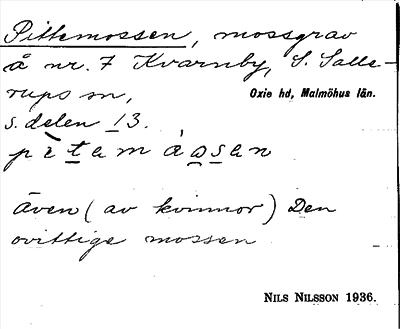 Pittemossen, mossgrav
å nr. 7 Kvarnby, S. Salle-
rups sn, Oxie hd, Malmöhus län.
s. delen 13.
pìtamåsan
även (av kvinnor) Den
ovittige mossen
NILS NILSSON 1936.